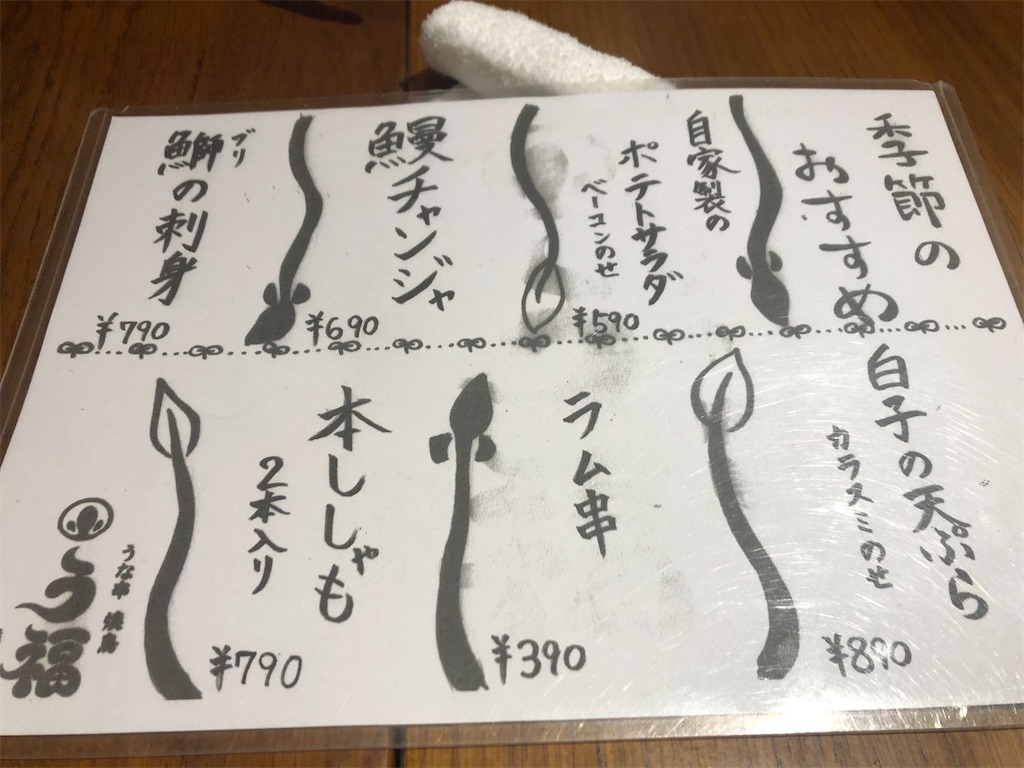 季節の
おすすめ
自家製の
ポテトサラダ
ベーコンのせ
¥590
鰻チャンジャ
¥690
ブリ
鰤の刺身
¥790
白子の天ぷら
カラスミのせ
¥890
ラム串
¥390
本ししゃも
2本入り
¥790
うな串 焼鳥
う福